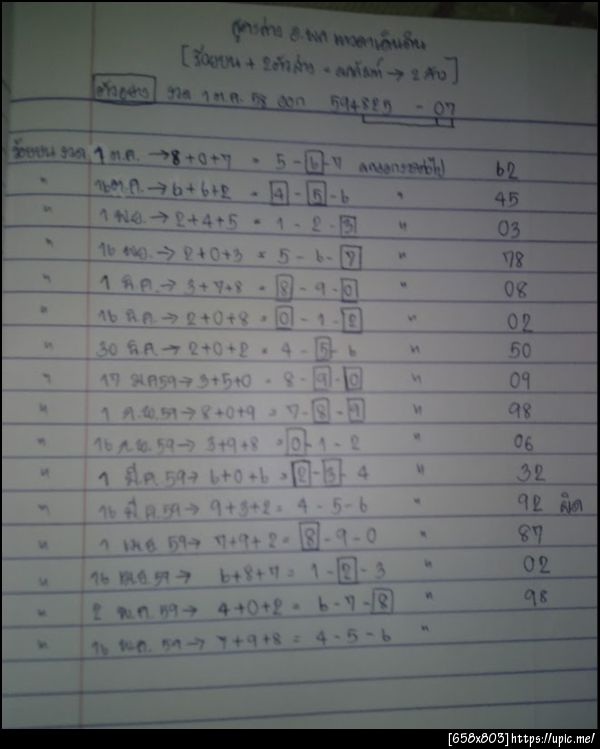 สูตรล่าง อ.พล ดาวดาเดินดิน
[ร้อยบน + 2ตัวล่าง = ผลลัพท์ → 2 ล่าง]
ตัวอย่าง งวด 1 ต.ค. 58 ออก 594825 - 07
ร้อยบน งวด 1 ต.ค. → 8+0+7 = 5 - 6 - 7 62
" 16 ต.ค. → 6+6+2 = 4 - 5 - 6 " 45
" 1 พ.ย. → 2+4+5 = 1 - 2 - 3 " 03
" 16 พ.ย. → 2+0+3 = 5 - 6 - 7 " 78
" 1 ธ.ค. → 3+7+8 = 8 - 9 - 0 " 08
" 16 ธ.ค. → 2+0+8 = 0 - 1 - 2 " 02
" 30 ธ.ค. → 2+0+2 = 4 - 5 - 6 " 50
" 17 ม.ค 59 → 3+5+0 = 8 - 9 - 0 " 09
" 1 ก.พ. 59 → 8+0+9 = 7 - 8 - 9 " 98
" 16 ก.พ. 59 → 3+9+8 = 0 - 1 - 2 " 06
" 1 มี.ค. 59 → 6+0+6 = 2 - 3 - 4 " 32
" 16 มี.ค. 59 → 9+3+2 = 4 - 5 - 6 " 92 ผิด
" 1 เม.ย 59 → 7+9+2 = 8 - 9 - 0 " 87
" 16 เม.ย. 59 → 6+8+7 = 1 - 2 - 3 " 02
" 2 พ.ค. 59 → 4+0+2 = 6 - 7 - 8 " 98
" 16 พ.ค. 59 → 7+9+8 = 4 - 5 - 6 "
[658x803]https://upic.me/